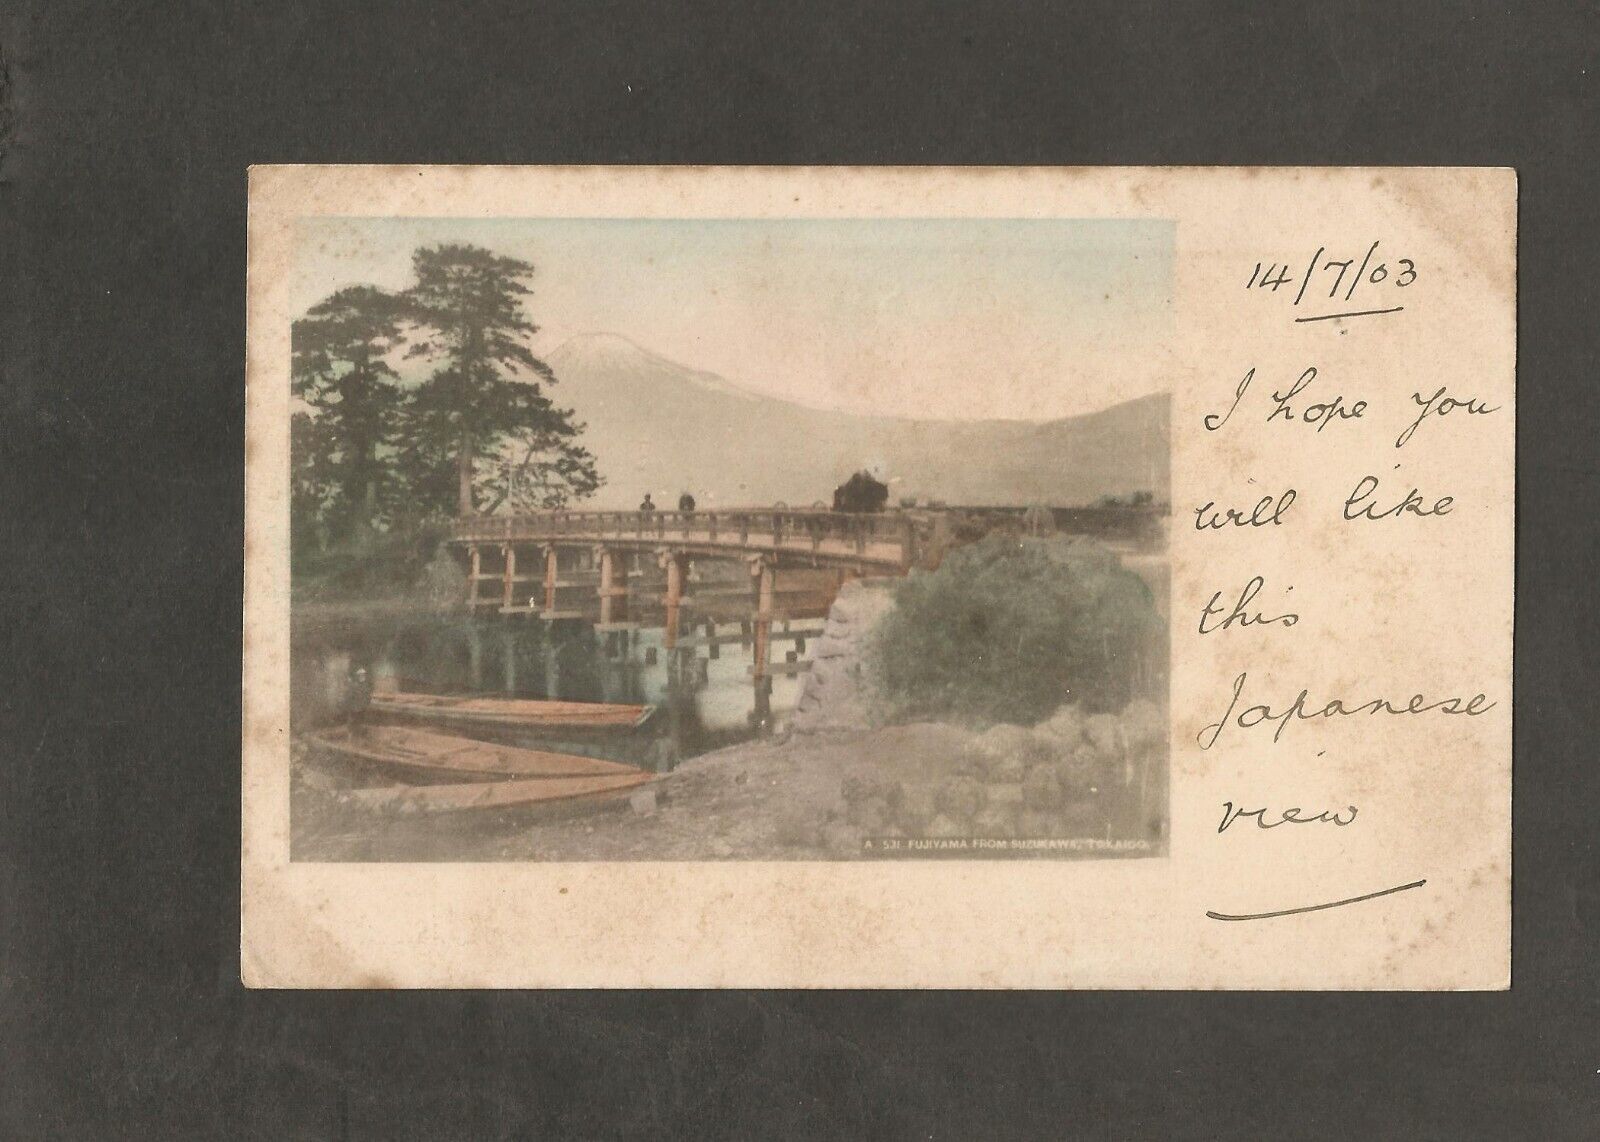 14/7/03
I hope you
will like
this
Japanese
view
A. 531. FUJIYAMA FROM SUZUKAWA, TOKAIDO.